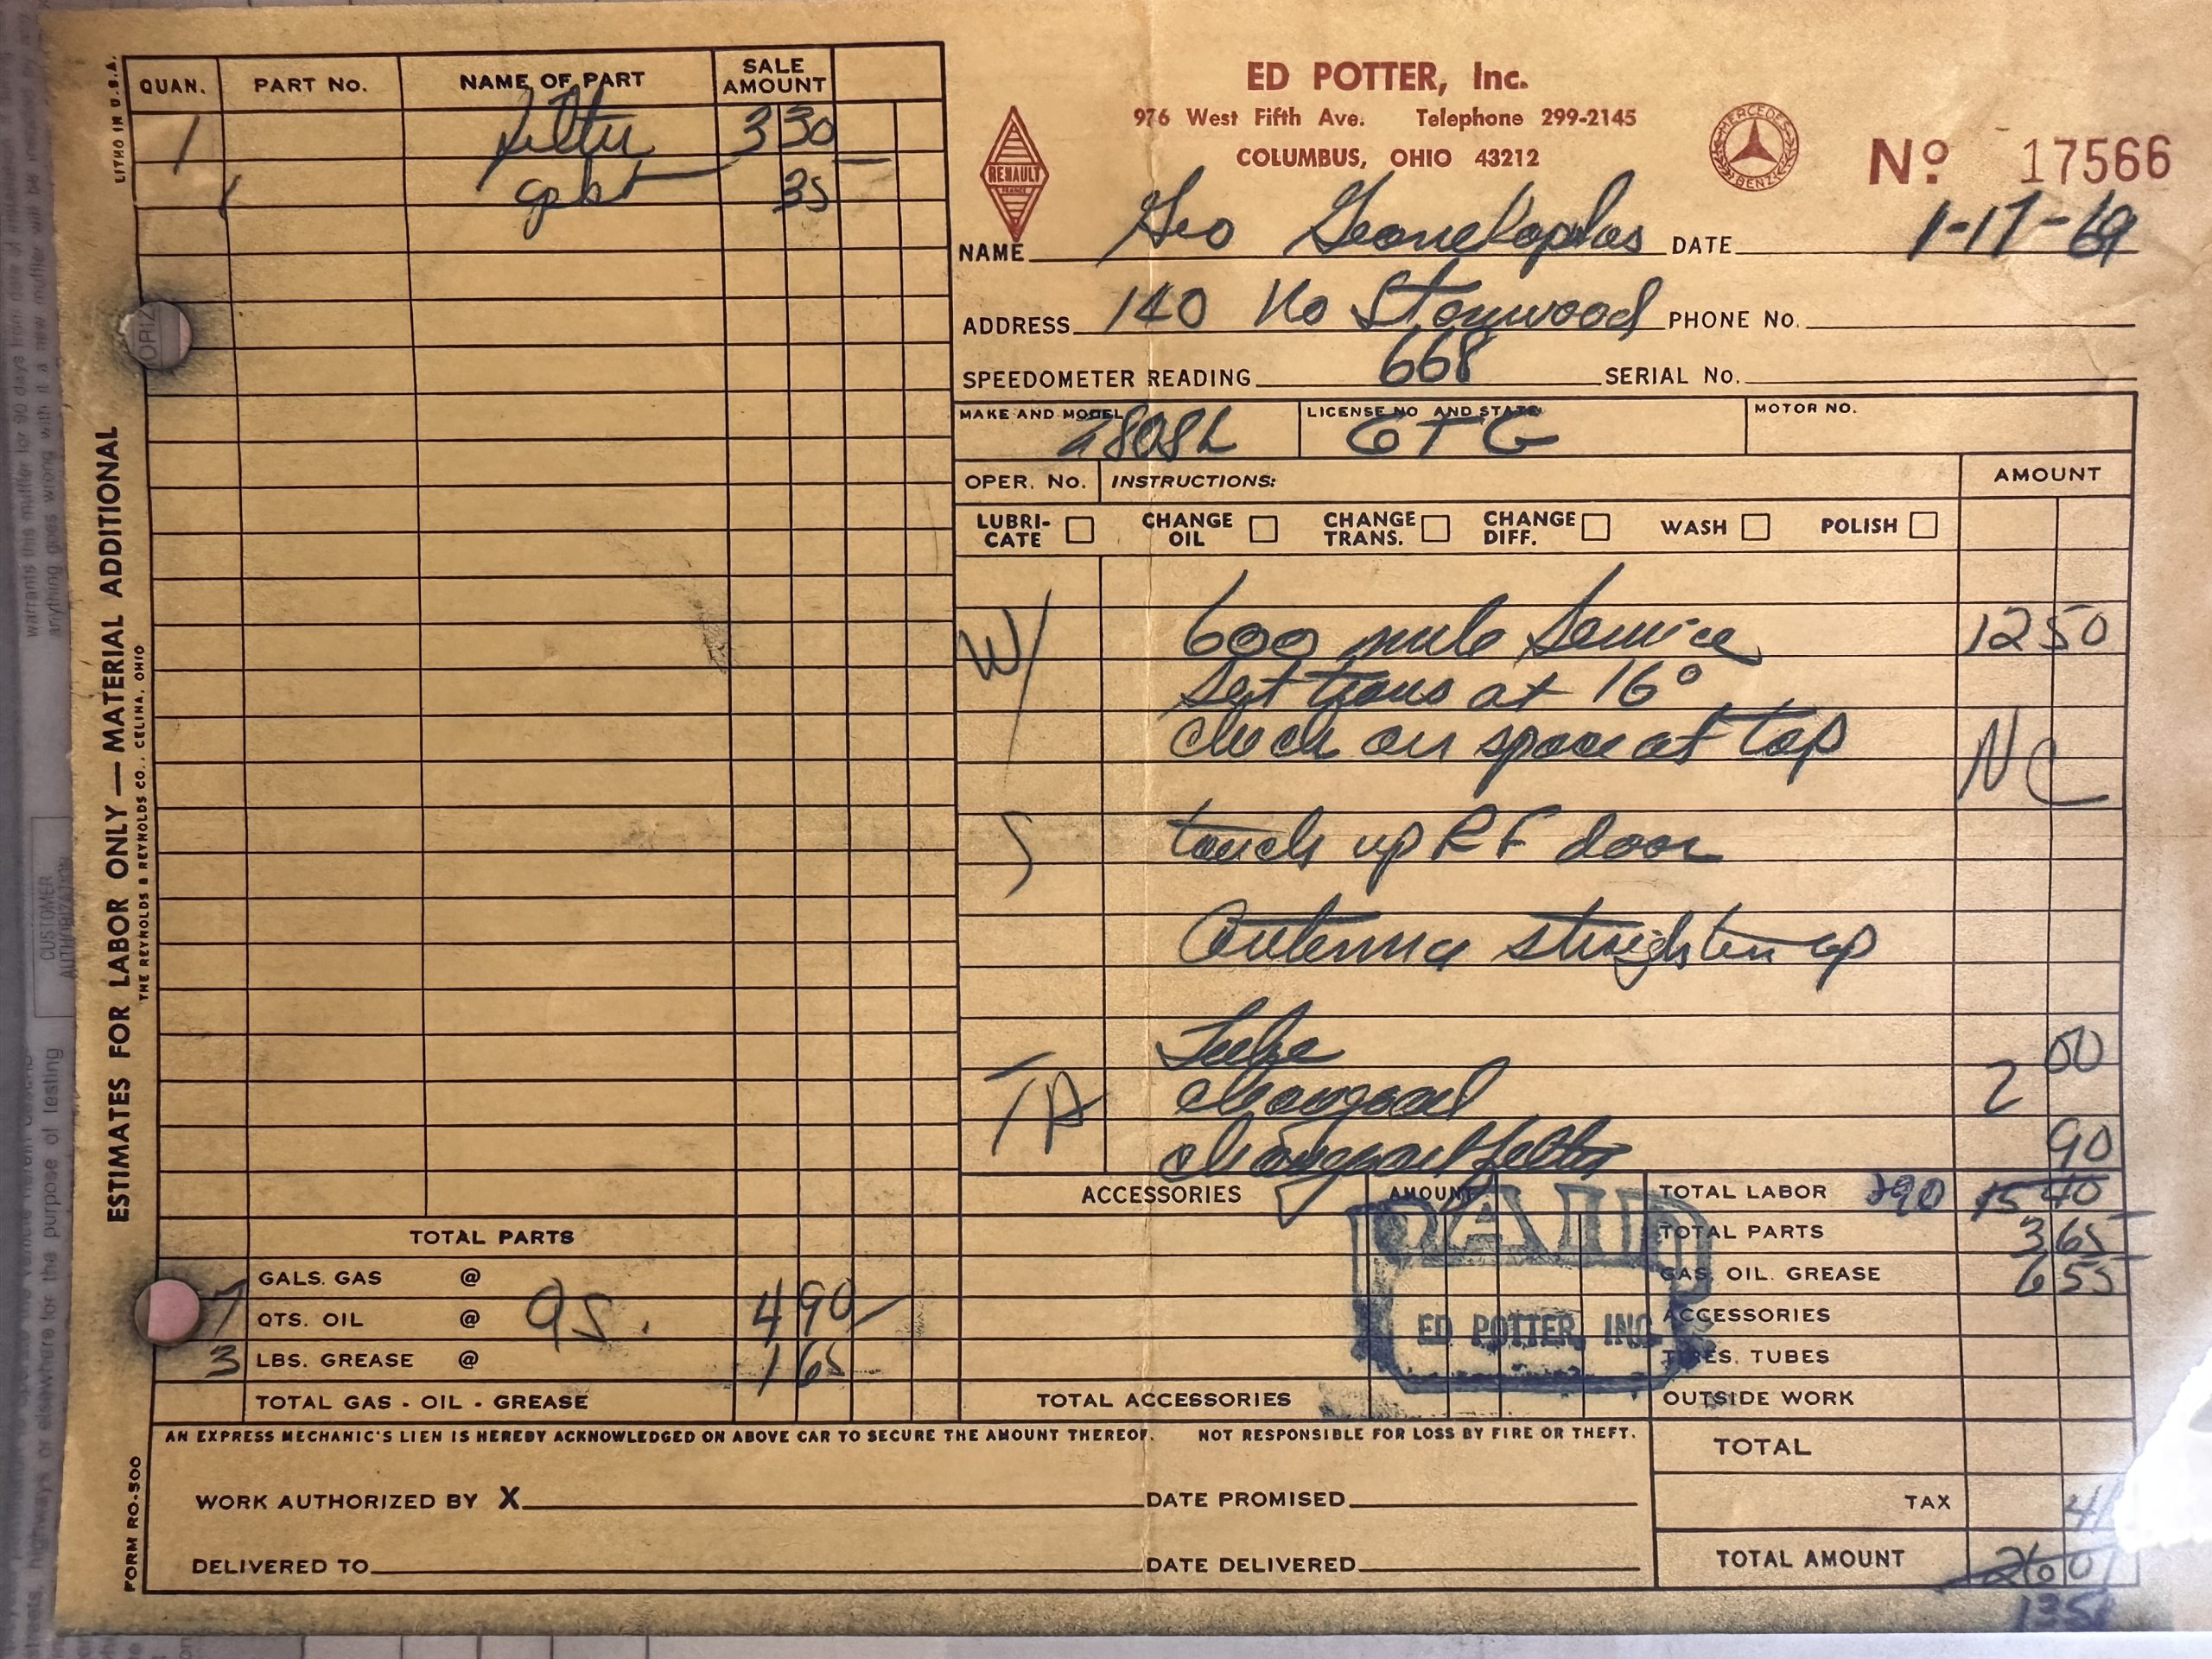 LITHO IN U.S.A.
QUAN. PART No. NAME OF PART SALE AMOUNT
1 filter 3 30
1 gskt 35
ED POTTER, Inc.
976 West Fifth Ave. Telephone 299-2145
COLUMBUS, OHIO 43212
RENAULT
FRANCE
MERCEDES
BENZ
Nº 17566
NAME Geo DATE 1-17-69
ADDRESS 140 No Stanwood PHONE No.
SPEEDOMETER READING 668 SERIAL No.
MAKE AND MODEL 280SL LICENSE NO AND STATE GTG MOTOR NO.
OPER. No. INSTRUCTIONS: AMOUNT
LUBRI-CATE CHANGE OIL CHANGE TRANS. CHANGE DIFF. WASH POLISH
W/ 600 mile Service 12 50
Set trans at 16°
check air space at top NC
S touch up RF door
Antenna straighten up
Lube 00
TA change oil 2
change oil filter 90
ESTIMATES FOR LABOR ONLY — MATERIAL ADDITIONAL
THE REYNOLDS & REYNOLDS CO., CELINA, OHIO
ACCESSORIES AMOUNT
TOTAL LABOR 290 15 40
TOTAL PARTS 3 65
GAS, OIL. GREASE 6 55
ACCESSORIES
TIRES. TUBES
OUTSIDE WORK
PAID
ED POTTER, INC.
TOTAL PARTS
GALS. GAS @
7 QTS. OIL @ 95. 4 90
3 LBS. GREASE @ 1 65
TOTAL GAS - OIL - GREASE
TOTAL ACCESSORIES
AN EXPRESS MECHANIC'S LIEN IS HEREBY ACKNOWLEDGED ON ABOVE CAR TO SECURE THE AMOUNT THEREOF. NOT RESPONSIBLE FOR LOSS BY FIRE OR THEFT.
TOTAL
WORK AUTHORIZED BY X DATE PROMISED
TAX 41
DELIVERED TO DATE DELIVERED
TOTAL AMOUNT 26 01
135
FORM RO-500
CUSTOMER AUTHORIZATION
warrants this muffler for 90 days from date of
anything goes wrong with it a new muffler will be
streets, highways or elsewhere for the purpose of testing